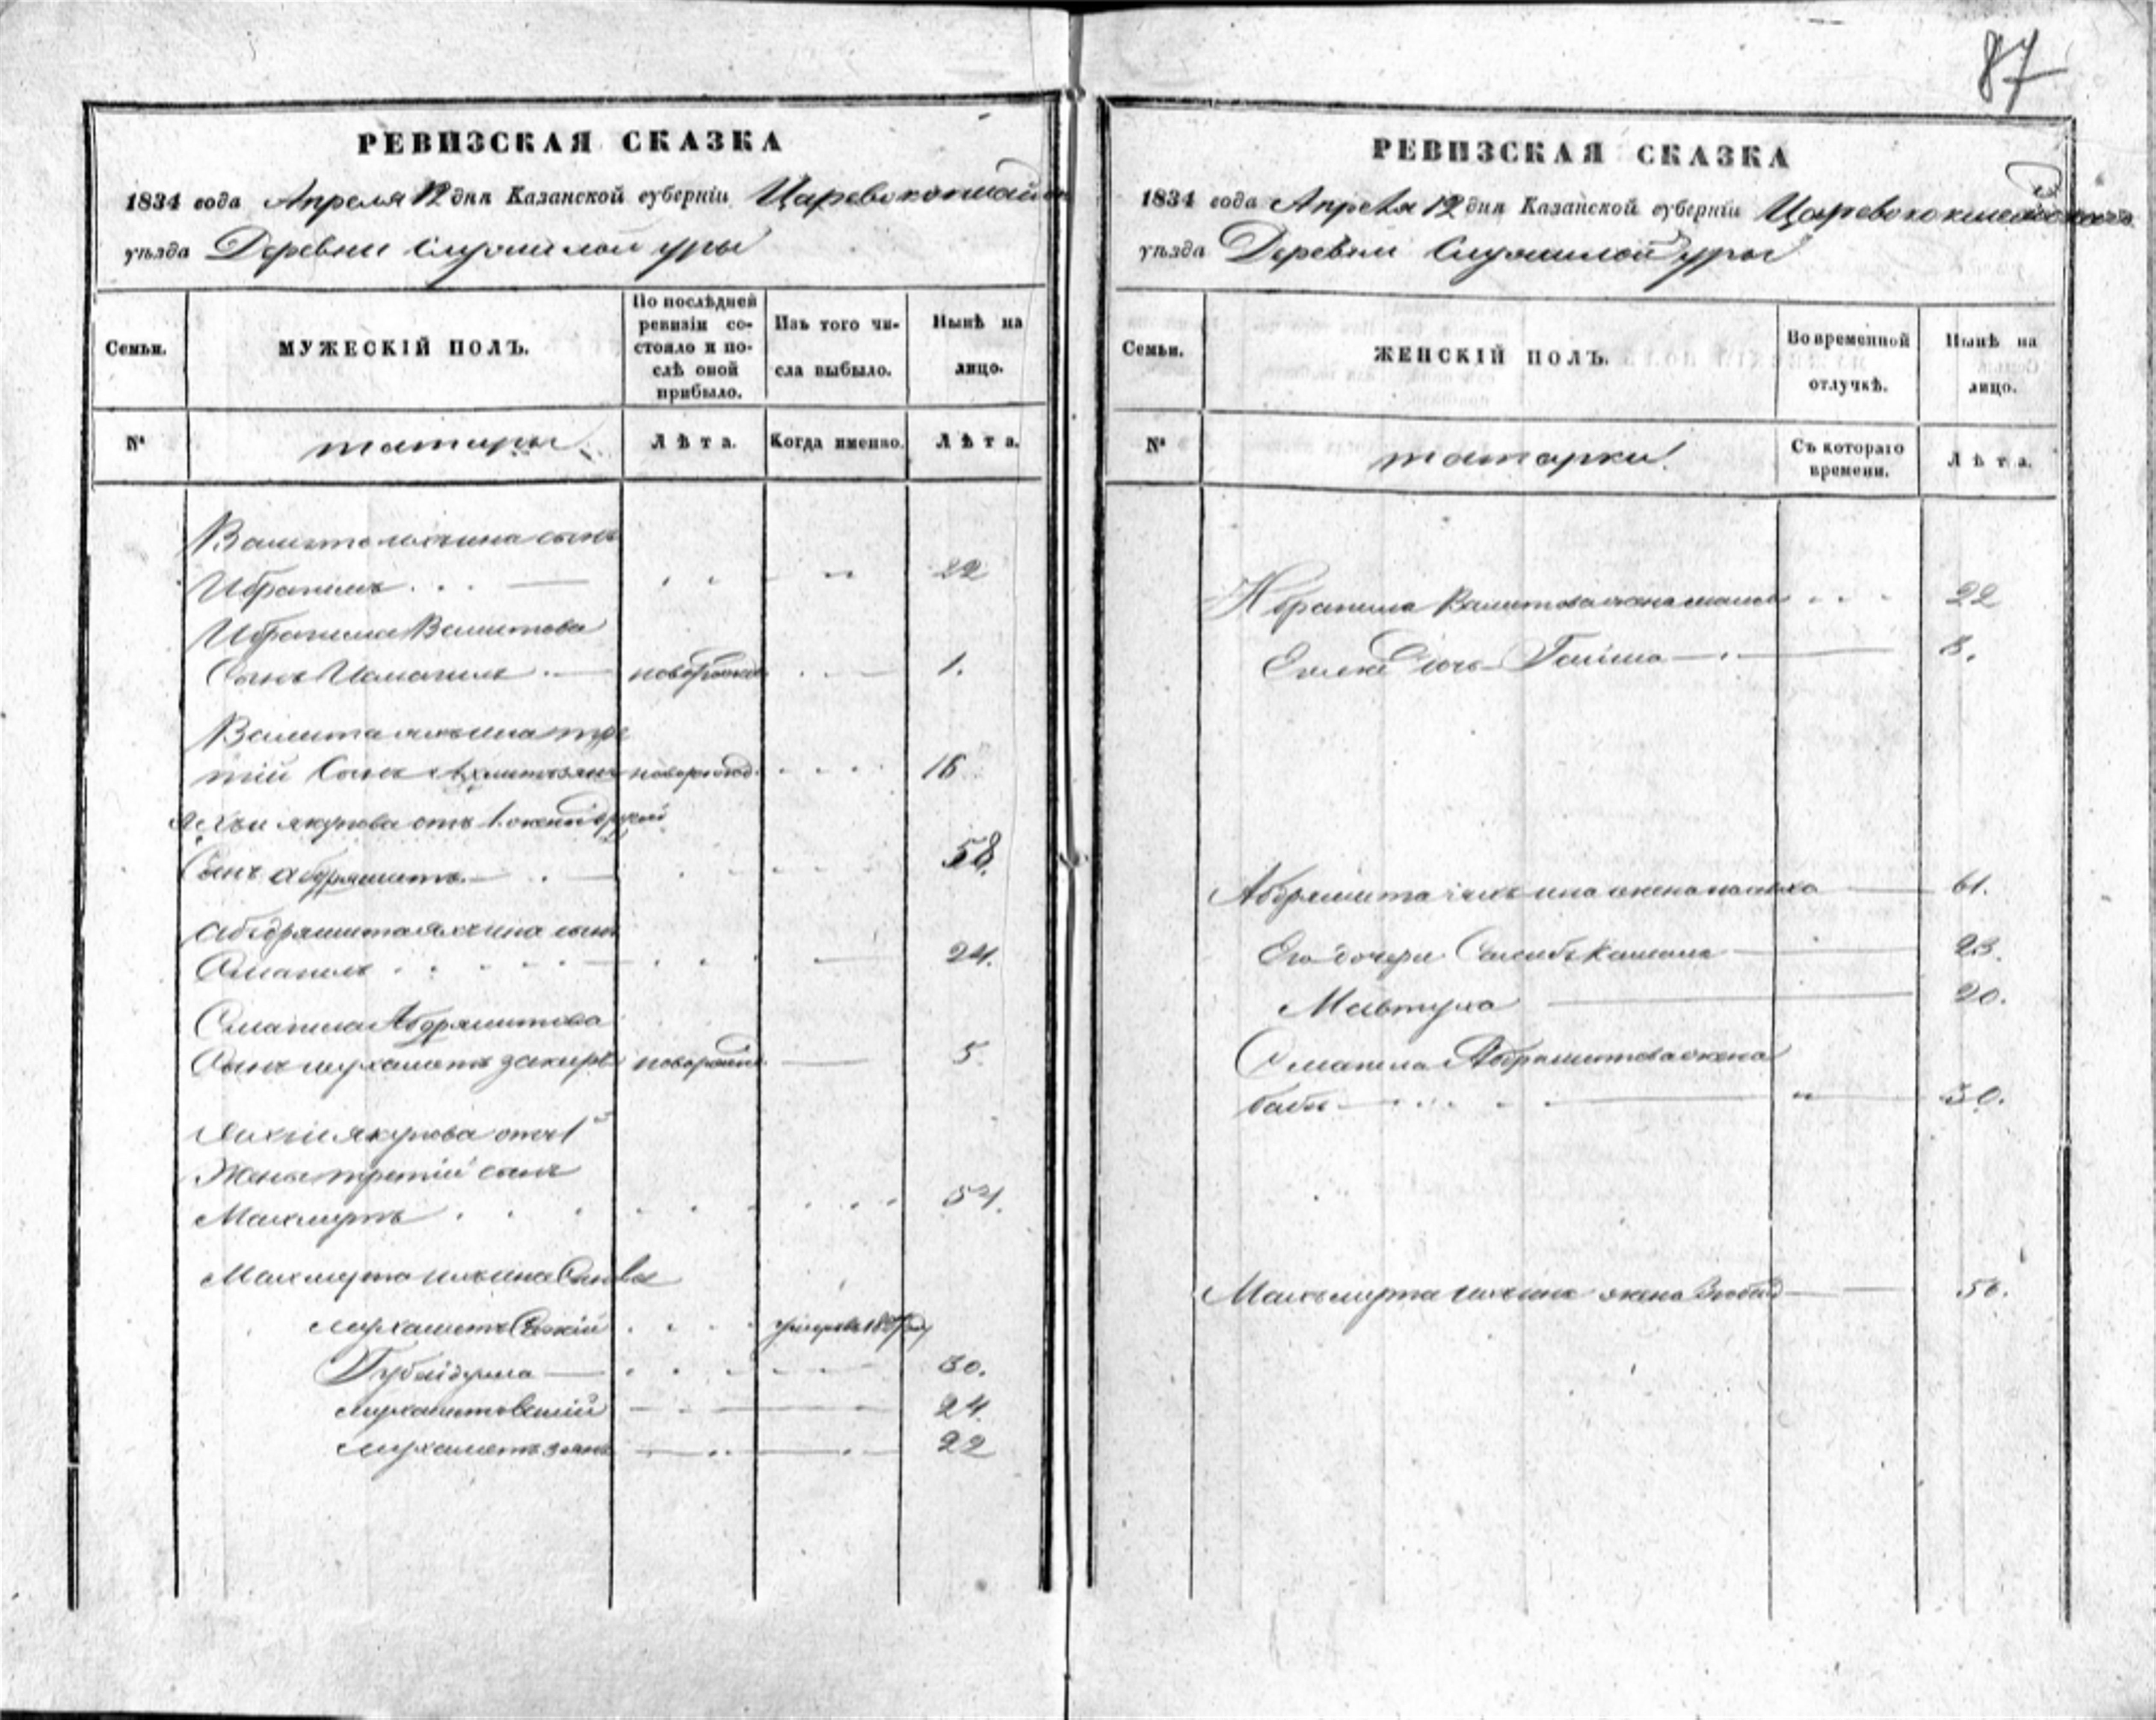 87
РЕВИЗСКАЯ СКАЗКА
1834 года Апреля 12 дня Казанской губерніи Царевококшайск
уѣзда Деревни Служилой уры
Семьи.
МУЖЕСКІЙ ПОЛЪ.
По послѣдней
ревизіи со-
стояло и по-
слѣ оной
прибыло.
Изъ того чи-
сла выбыло.
Нынѣ на
лицо.
№
татары
Лѣта.
Когда именно.
Лѣта.
Валита яхъина сынъ
Ибрагимъ 22
Ибрагима Валитова
Сынъ Исмагилъ новорожд 1.
Валита яхъина тре
тій Сынъ Ахметзянъ новорожд. 16
Яхъи якупова отъ 1. жены другой
Сынъ абдряшитъ 58.
абдряшита яхъина сынъ
Смагилъ 24.
Смагила Абдряшитова
Сынъ мухаметъ закиръ новорожд 5.
Яихъи якупова отъ 1й
Жены третій сынъ
Махмутъ 54.
Махмута яихъина Сыновья
мухаметъ умеръ 18 году
Губайдулла 30.
мухамет 24.
мухаметъ зянъ 22
РЕВИЗСКАЯ СКАЗКА
1834 года Апреля 12 дня Казанской губерніи Царевококшайскаго
уѣзда Деревни Служилой уры
Семьи.
ЖЕНСКІЙ ПОЛЪ.
Во временной
отлучкѣ.
Нынѣ на
лицо.
№
татарки
Съ котораго
времени.
Лѣта.
Ибрагима Валитова жена 22
Дочь 8.
Абдряшита яихъина жена 61.
Его дочери 23.
Мавтуха 20.
Смагила Абдряшитова жена
30.
Махмута яихъина жена 56.